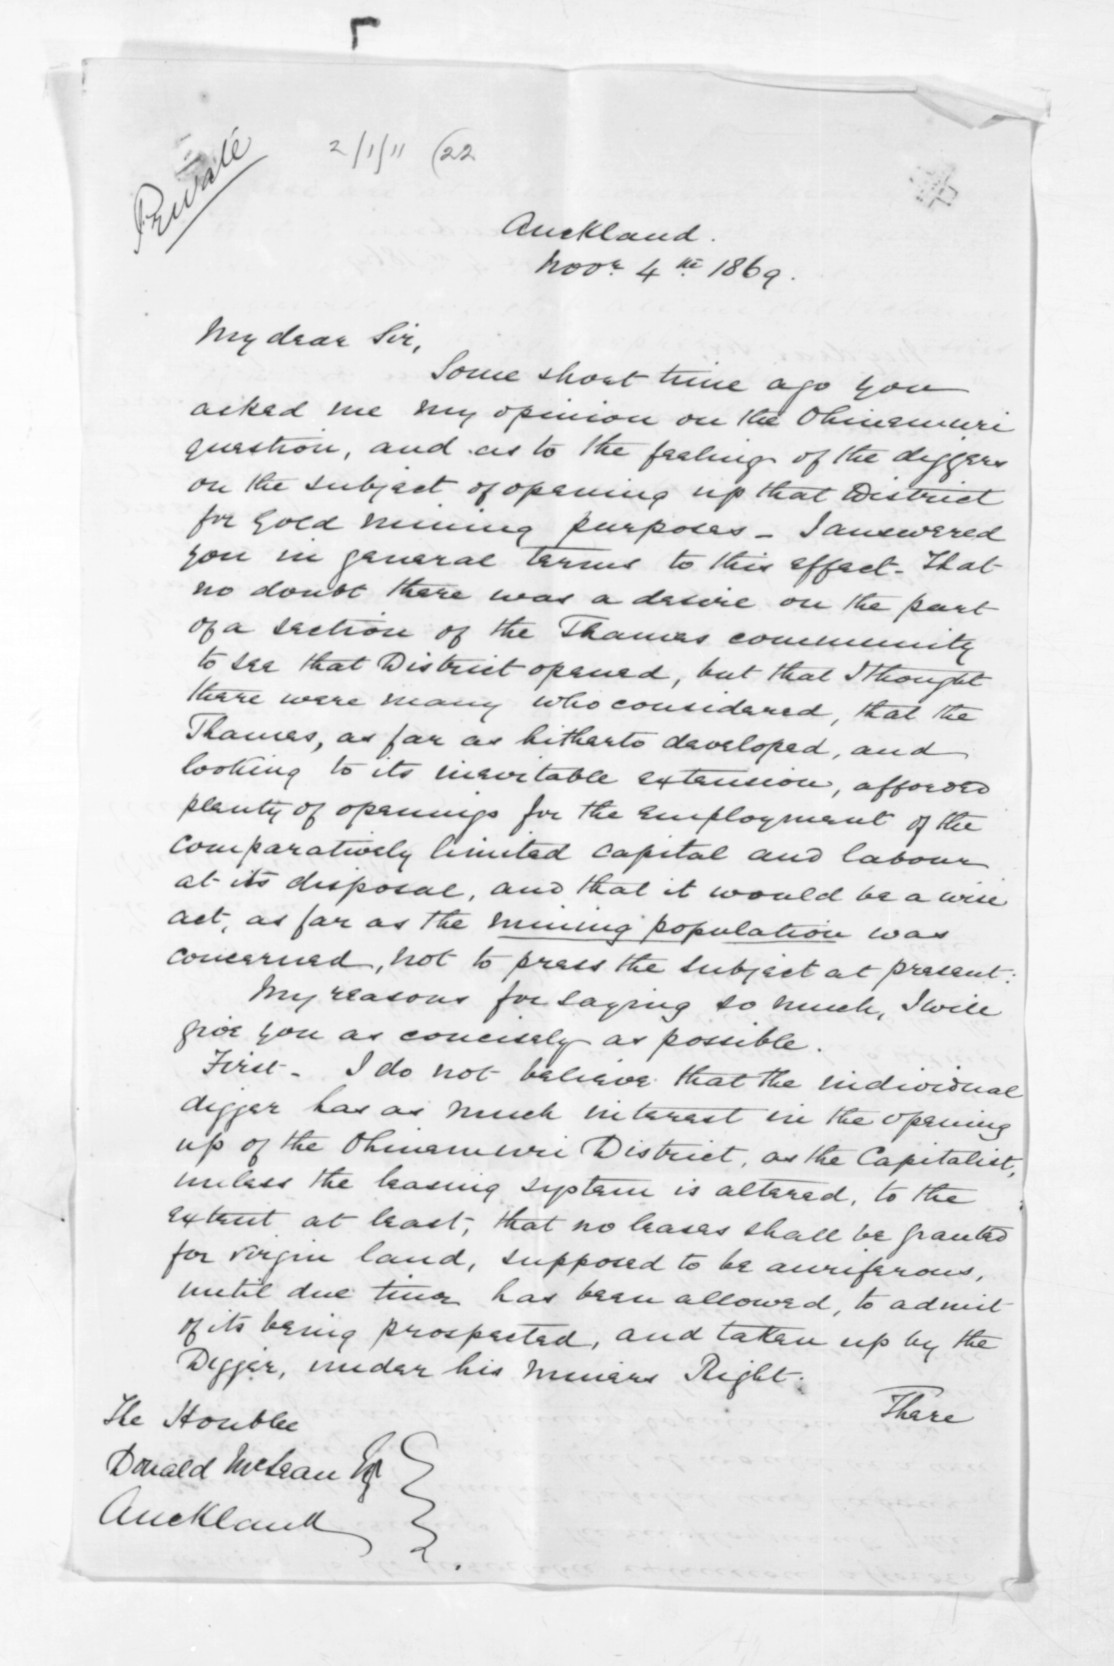 Private
2/1/11 (22
Auckland.
Novr. 4th. 1869.
My dear Sir,
Some short time ago you
asked me my opinion on the Ohinemuri
question, and as to the feeling of the diggers
on the subject of opening up that District
for Gold mining purposes - I answered
you in general terms to this effect - That
no doubt there was a desire on the part
of a section of the Thames community
to see that District opened, but that I thought
there were many who considered, that the
Thames, as far as hitherto developed, and
looking to its inevitable extension, afforded
plenty of openings for the employment of the
comparatively limited capital and labour
at its disposal, and that it would be a wise
act, as far as the mining population was
concerned, not to press the subject at present:
My reasons for saying so much, I will
give you as concisely as possible.
First - I do not believe that the individual
digger has as much interest in the opening
up of the Ohinemuri District, as the Capitalist,
unless the leasing system is altered, to the
extent at least, that no leases shall be granted
for virgin land, supposed to be auriferous,
until due time has been allowed, to admit
of its being prospected, and taken up by the
Digger, under his Miners Right.
There
The Honble
Donald McLean Esq
Auckland